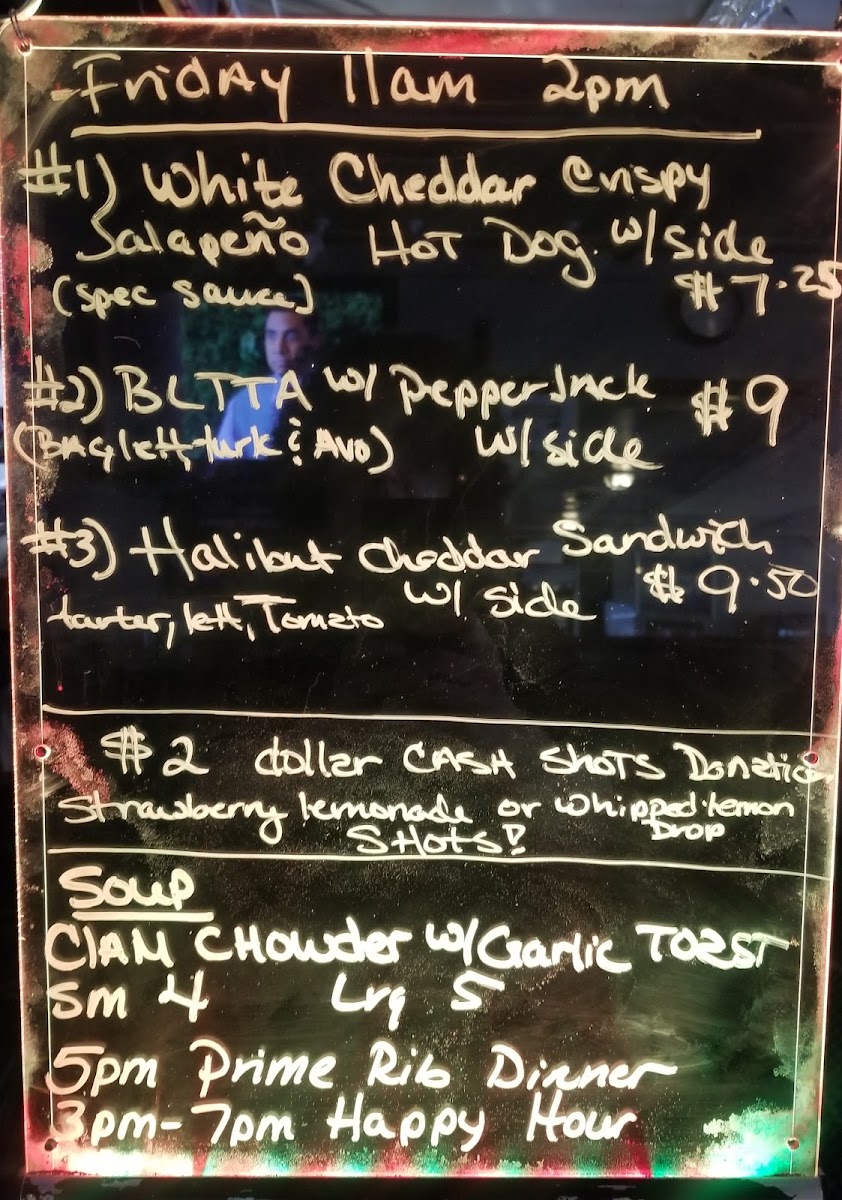 Friday 11am 2pm
#1) White Cheddar Crispy
Jalapeño Hot Dog w/ side
(spec sauce) $7.25
#2) BLTTA w/ PepperJack $9
(BAg lett, turk & Avo) w/ side
#3) Halibut Cheddar Sandwich
tarter, lett, Tomato w/ side $9.50
$2 dollar CASH SHOTS Donatio
Strawberry lemonade or whipped lemon
Drop
SHOTS!
Soup
ClAM CHowder w/ Garlic TOAST
Sm 4 Lrg 5
5pm Prime Rib Dinner
3pm-7pm Happy Hour